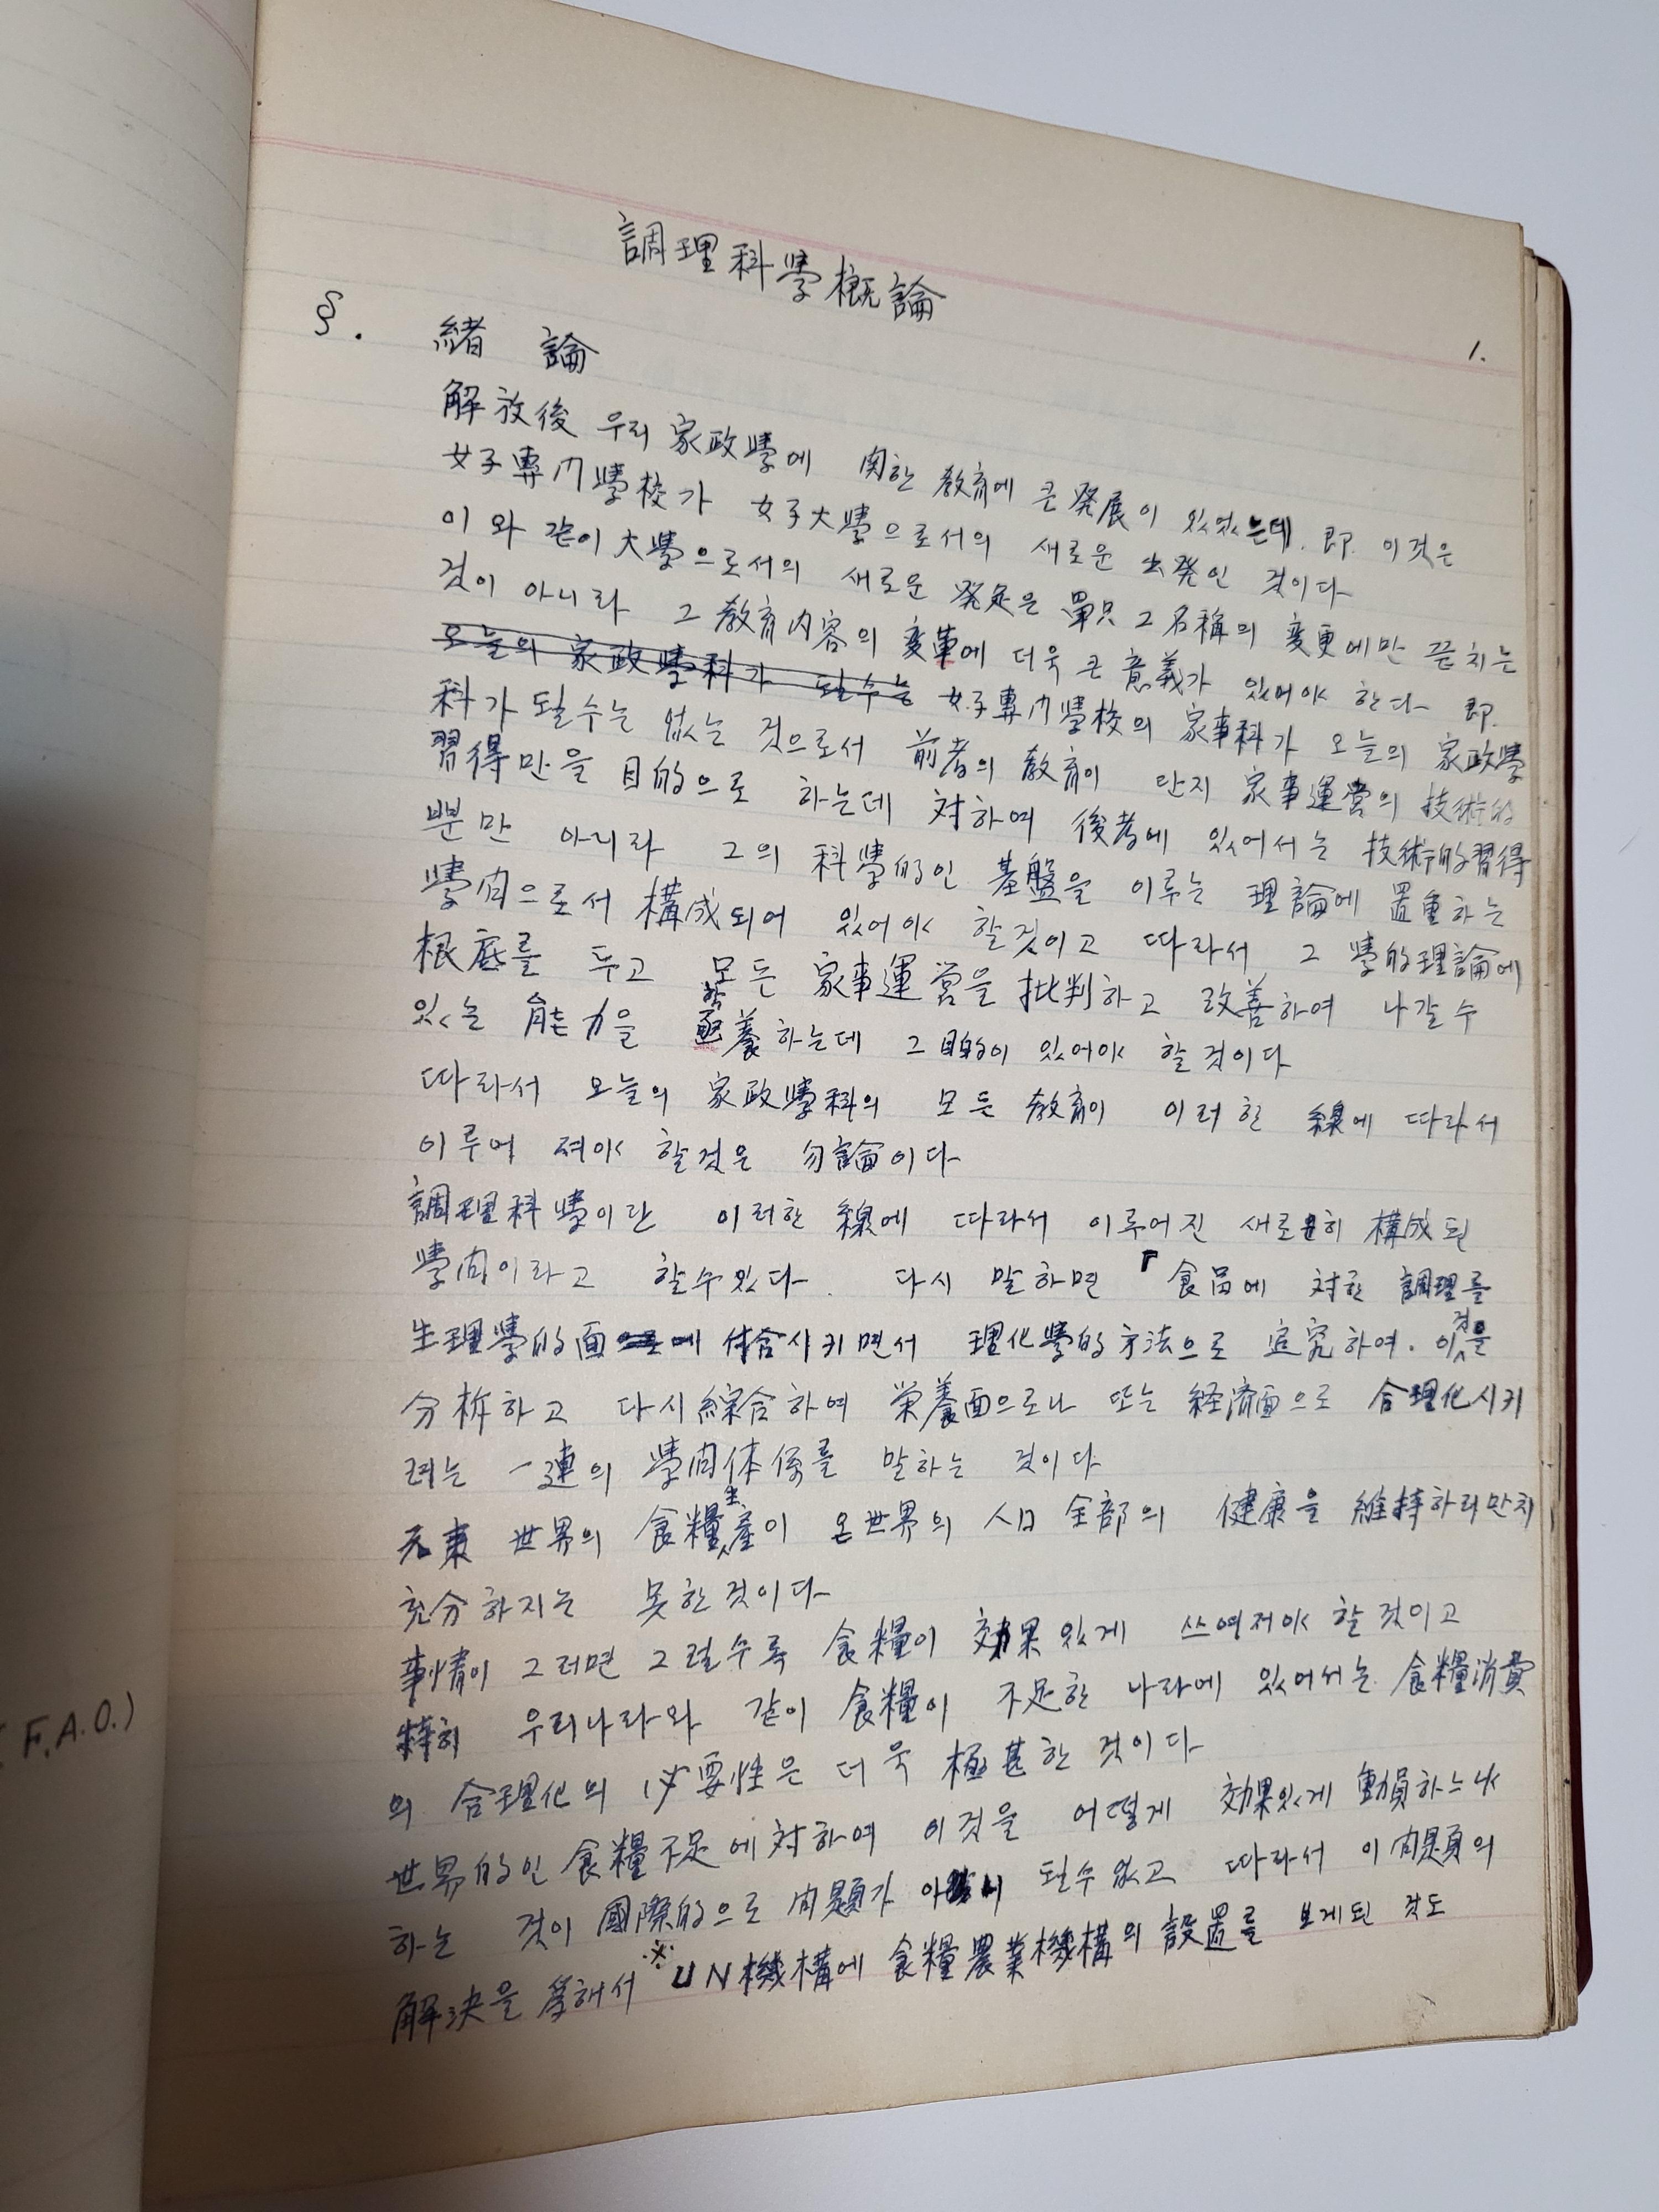 調理科學概論
1.
§. 緖論
解放後 우리 家政學에 関한 敎育에 큰 発展이 있었는데. 即. 이것은
女子專門學校가 女子大學으로서의 새로운 出発인 것이다
이와 같이 大學으로서의 새로운 発足은 單只 그 名稱의 変更에만 끝치는
것이 아니라 그 敎育内容의 変革에 더욱 큰 意義가 있어야 한다 即.
오늘의 家政學科가 될수는 女子專門學校의 家事科가 오늘의 家政學
科가 될수는 없는 것으로서 前者의 敎育이 단지 家事運営의 技術的
習得만을 目的으로 하는데 対하여 後者에 있어서는 技術的習得
뿐만 아니라 그의 科學的인 基盤을 이루는 理論에 置重하는
學问으로서 構成되어 있어야 할것이고 따라서 그 學的理論에
根底를 두고 모든 家事運営을 批判하고 改善하여 나갈 수
있는 能力을 養하는데 그 目的이 있어야 할 것이다
따라서 오늘의 家政學科의 모든 敎育이 이러한 線에 따라서
이루어 져야 할것은 勿論이다
調理科學이란 이러한 線에 따라서 이루어진 새로히 構成된
學问이라고 할수있다. 다시 말하면 「食品에 対한 調理를
生理學的面에 付合시키면서 理化學的方法으로 追究하여. 이것을
分析하고 다시 綜合하여 栄養面으로나 또는 経済面으로 合理化시키
려는 一連의 學问体係를 말하는 것이다
元來 世界의 食糧生産이 온世界의 人口 全部의 健康을 維持하리만치
充分하지는 못한것이다
事情이 그러면 그럴수록 食糧이 効果있게 쓰여저야 할 것이고
特히 우리나라와 같이 食糧이 不足한 나라에 있어서는 食糧消費
의 合理化의 必要性은 더욱 極甚한 것이다
世界的인 食糧不足에 対하여 이것을 어떻게 効果있게 動員하느냐
하는 것이 國際的으로 问題가 될수없고 따라서 이 问題의
解決을 爲해서 ※UN機構에 食糧農業機構의 設置를 보게된 것도
F.A.O.)